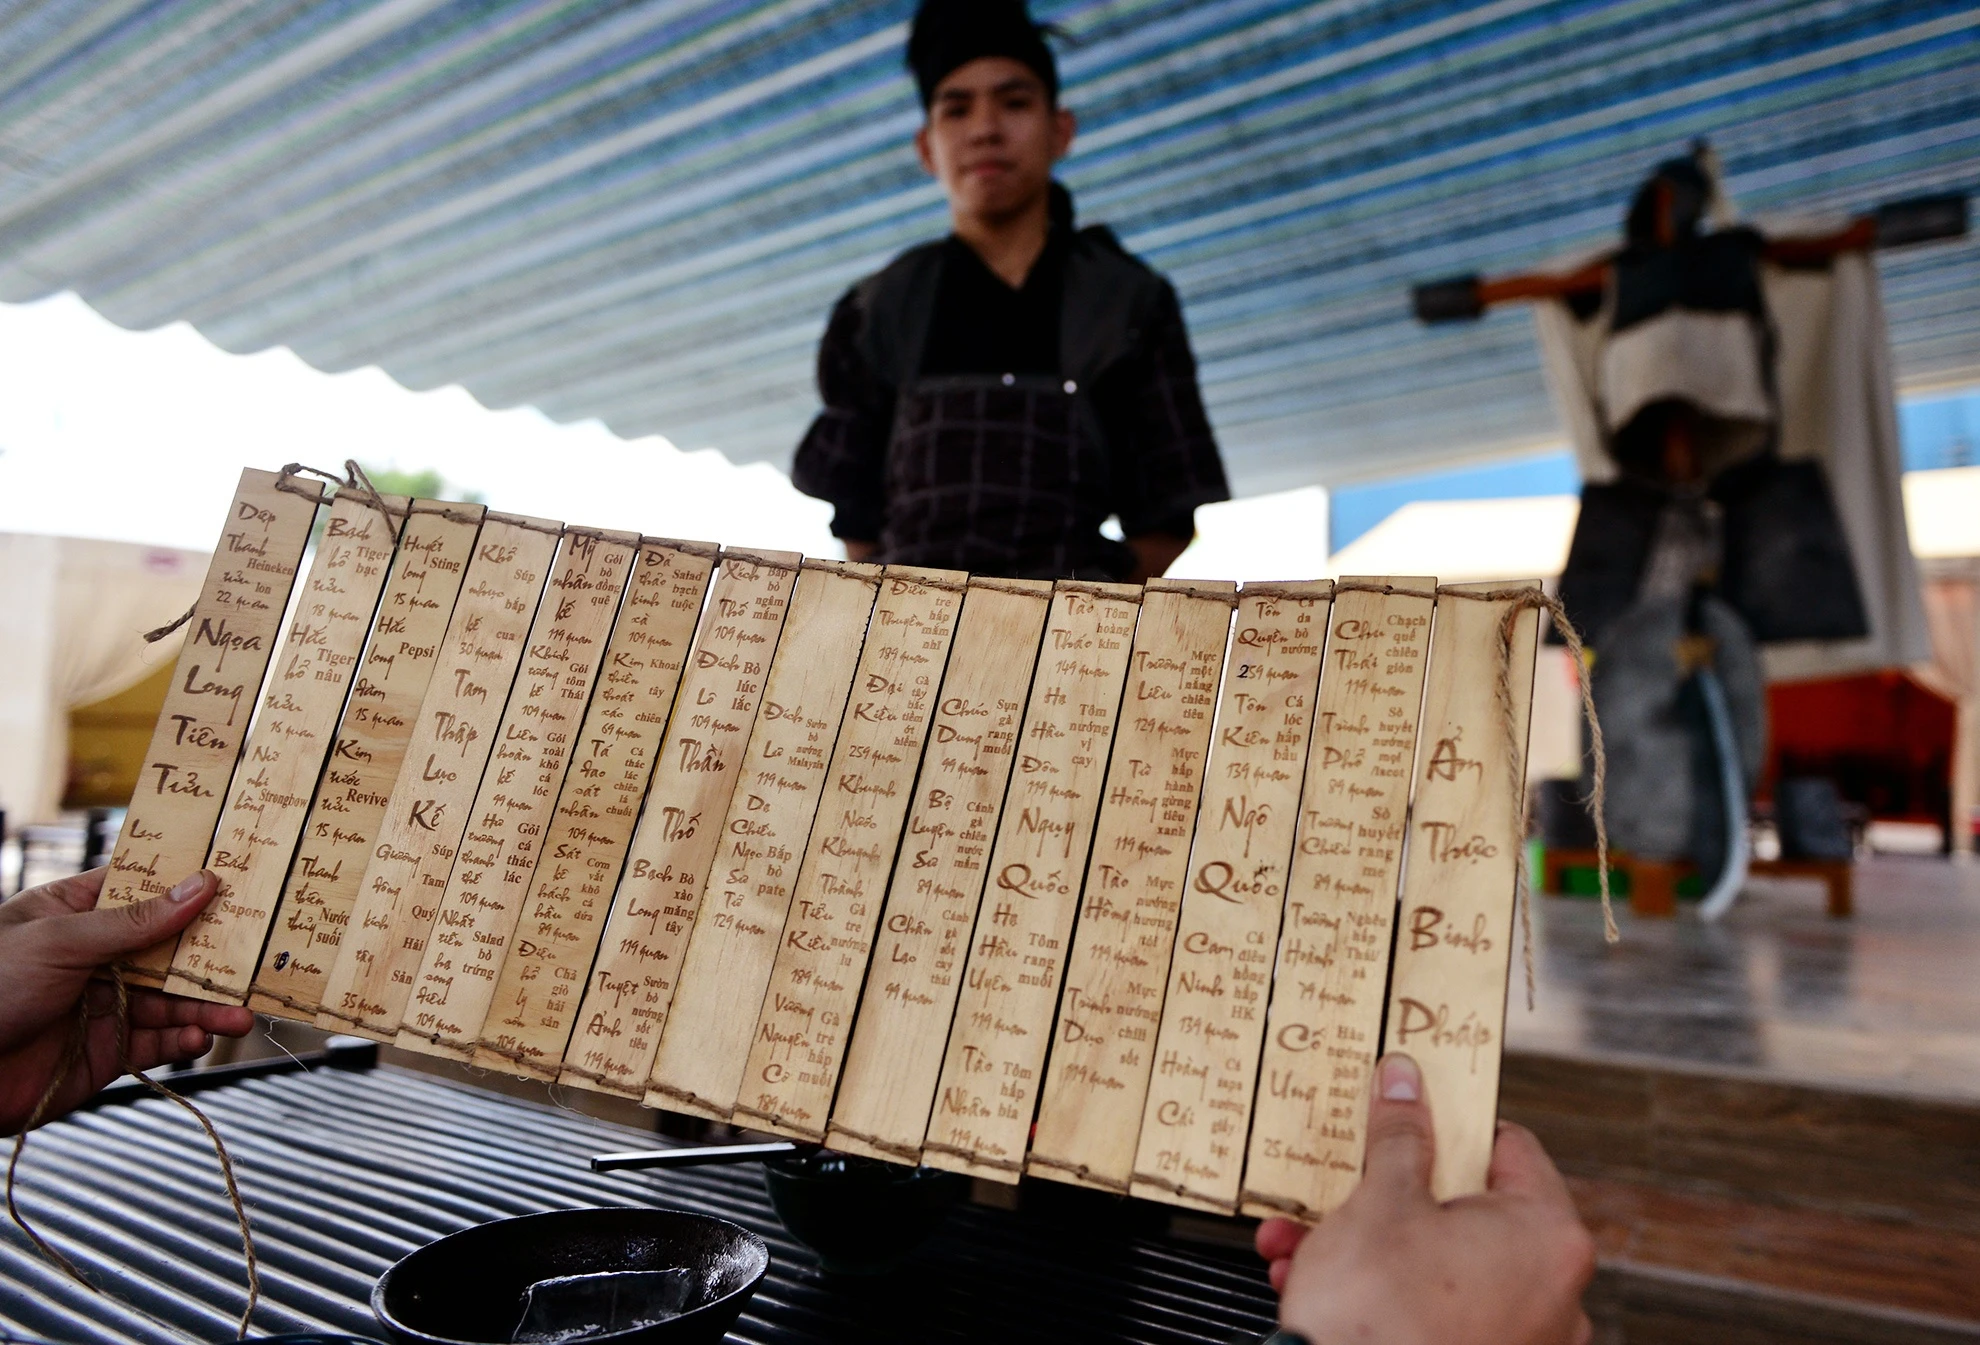 Diệp
Thanh
Heineken
tửu lon
22 quan
Ngọa
Long
Tiên
Tửu
Lục
thanh
tửu
Bạch
hổ Tiger
bạc
tửu
18 quan
Hắc
hổ Tiger
nâu
tửu
16 quan
Nữ
nhi
hồng Strongbow
19 quan
Bách
Saporo
tửu
18 quan
Huyết
long Sting
15 quan
Hắc
long Pepsi
đám
15 quan
Kim
nước
tửu Revive
15 quan
Thanh
thiên
thủy Nước
suối
quan
Khổ
nhục Súp
bắp
kế cua
30 quan
Tam
Thập
Lục
Kế
Gương Súp
đồng Tam
kích Quý
Hải
Sản
35 quan
Mỹ Gỏi
nhân bò
đồng
kế quê
119 quan
Khích Gỏi
tướng tôm
kế Thái
109 quan
Liên Gỏi
hoàn xoài
khô
kế cá
lóc
99 quan
Hư Gỏi
trương cá
thanh thác
thế lác
109 quan
Nhất
tiễn Salad
hạ trứng
song
điêu
109 quan
Đả
thảo Salad
bạch
kinh tuộc
xà
109 quan
Kim Khoai
thiền tây
thoát
xác chiên
69 quan
Tá Cá
thác
đao lác
chiên
sát lá
nhân chuối
109 quan
Sát Cơm
kê vắt
khô
hách cá
hầu dứa
89 quan
Điệu
hổ Chả
giò
ly hải
sơn sản
109 quan
Xích Bắp
bò
ngâm
Thố mắm
109 quan
Đích Bò
lúc
Lô lắc
109 quan
Thần
Thố
Bạch Bò
xào
Long măng
tây
119 quan
Tuyệt Sườn
bò
nướng
Ảnh sốt
tiêu
119 quan
Đích Sườn
bò
Lư nướng
Malaysia
119 quan
Dạ
Chiếu
Ngọc Bắp
Sư bò
pate
Tử
129 quan
Điêu Gà
tre
Thuyền hấp
mắm
nhĩ
189 quan
Đại Gà
tây
Kiều bác
tiềm
ớt
hiểm
259 quan
Khuynh
Nước
Khuynh
Thành
Tiểu Gà
tre
Kiều nướng
lu
189 quan
Vương Gà
Nguyên tre
hấp
Cơ muối
189 quan
Chúc Sụn
gà
Dung rang
muối
99 quan
Bộ Cánh
gà
Luyện chiên
nước
Sư mắm
89 quan
Chân Cánh
gà
Lạc sốt
cay
thái
99 quan
Tào Tôm
hoàng
Tháo kim
149 quan
Hạ Tôm
nướng
Hầu vị
cay
Đôn
119 quan
Ngụy
Quốc
Hạ
Hầu Tôm
rang
Uyên muối
119 quan
Tào Tôm
hấp
Nhân bia
119 quan
Trương Mực
một
Liêu nắng
chiên
tiêu
129 quan
Từ Mực
hấp
Hoảng hành
gừng
tiêu
xanh
119 quan
Tào Mực
nướng
Hồng hương
tỏi
119 quan
Trình Mực
nướng
Dục chili
sốt
119 quan
Tôn Cá
da
Quyền bò
nướng
259 quan
Tôn Cá
lóc
Kiên hấp
bầu
139 quan
Ngô
Quốc
Cam Cá
diêu
hồng
Ninh hấp
HK
139 quan
Hoàng Cá
sapa
nướng
Chi giấy
bạc
129 quan
Chu Chạch
quế
Thái chiên
giòn
119 quan
Trình Sò
huyết
nướng
Phổ mọi
89 quan
Trương Sò
huyết
Chiêu rang
me
89 quan
Trương Nghêu
hấp
Hoành Thái/
sả
79 quan
Cố Hàu
nướng
phô
Ung mai/
mỡ
hành
25 quan/con
Ẩm
Thực
Binh
Pháp